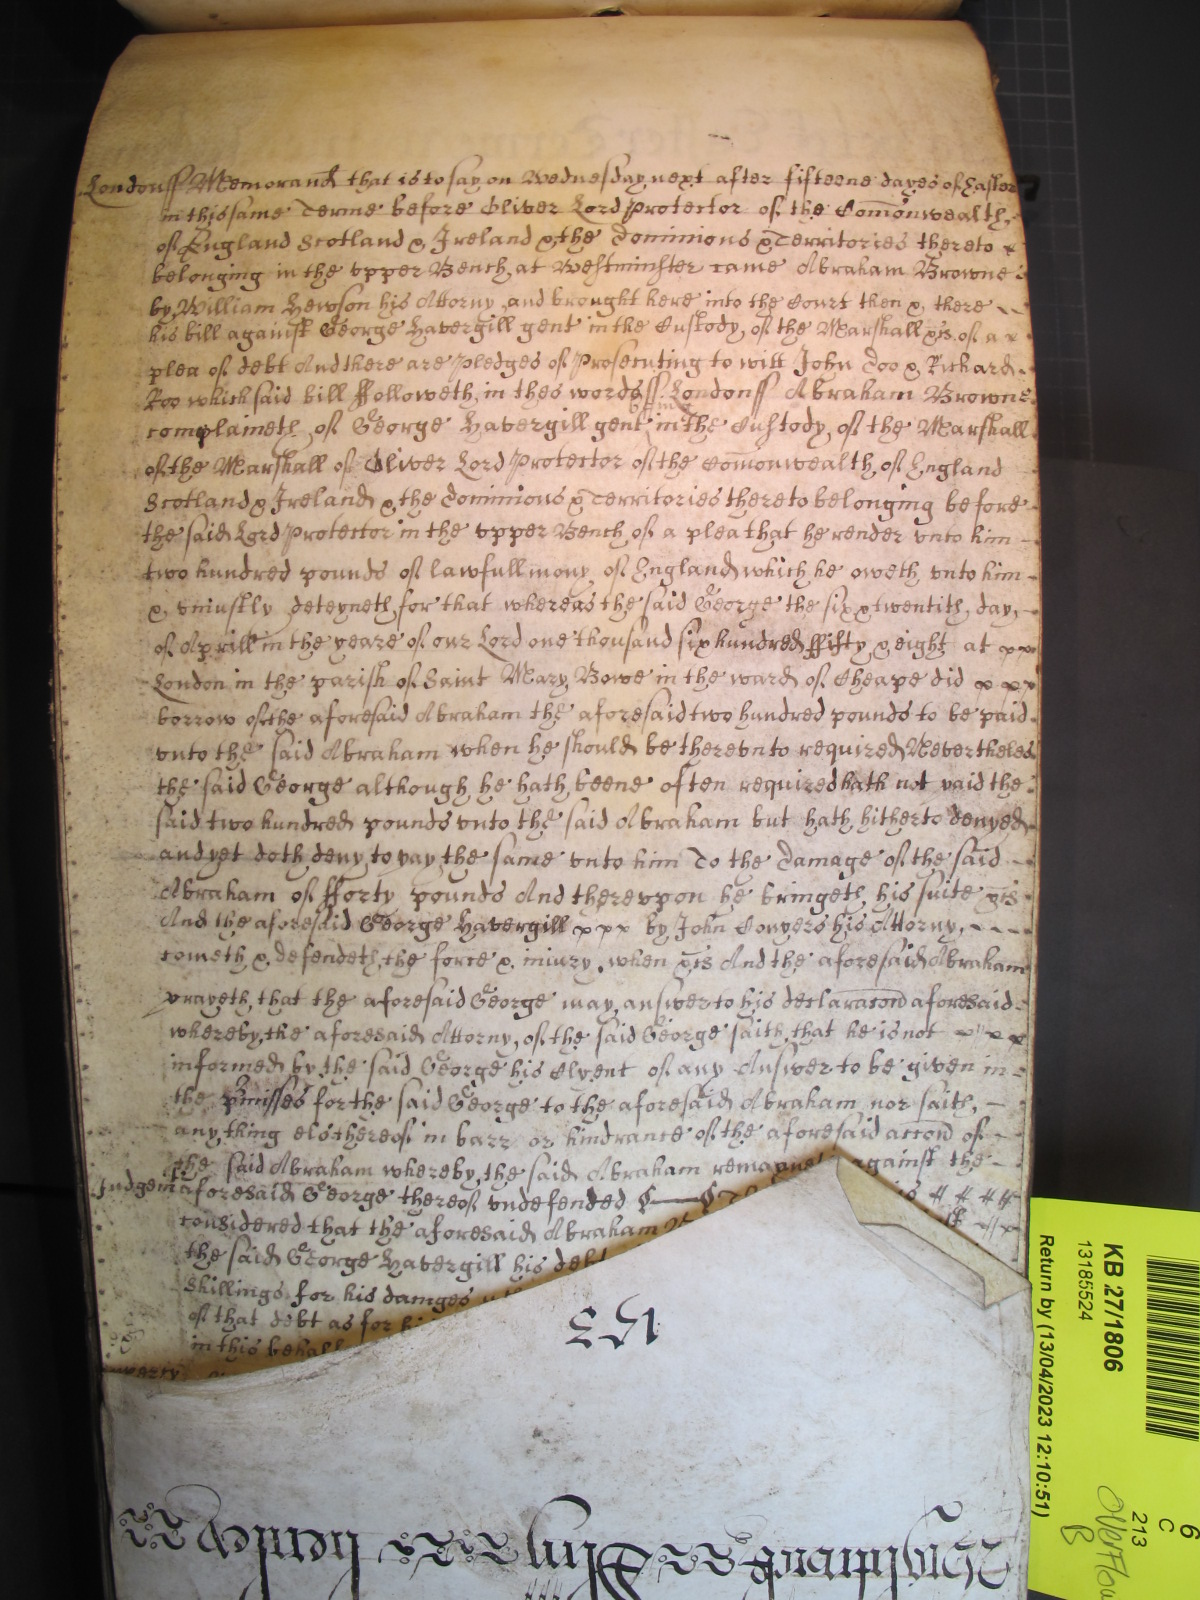 Londonss Memorand that is to say on Wednesday next after fifteene dayes of Easter
in this same Terme before Oliver Lord Protector of the Comonwealth
of England Scotland & Ireland & the Dominions & Territories thereto
belonging in the upper Bench at Westminster came Abraham Browne
by William Hewson his Attorny and brought here into the Court then & there
his bill against George Havergill gent in the Custody of the Marshall &c of a
plea of debt And there are pledges of Prosecuting to witt John Doo & Richard
Roo which said bill ffolloweth in thes words ss Londonss Abraham Browne
complaineth of George Havergill gent being in the Custody of the Marshall
of the Marshall of Oliver Lord Protector of the Comonwealth of England
Scotland & Ireland & the Dominions & Territories thereto belonging before
the said Lord Protector in the upper Bench of a plea that he render unto him
two hundred pounds of lawfull mony of England which he oweth unto him
& uniustly deteyneth for that whereas the said George the six & twentith day
of Aprill in the yeare of our Lord one thousand six hundred ffifty & eight at
London in the parish of Saint Mary Bowe in the ward of Cheape did
borrow of the aforesaid Abraham the aforesaid two hundred pounds to be paid
unto the said Abraham when he should be thereunto required Neverthelese
the said George although he hath beene often required hath not paid the
said two hundred pounds unto the said Abraham but hath hitherto denyed
and yet doth deny to pay the same unto him To the Damage of the said
Abraham of fforty pounds And thereupon he bringeth his suite &c
And the aforesaid George Havergill by John Conyers his Attorny
cometh & defendeth the force & iniury when &c And the aforesaid Abraham
prayeth that the aforesaid George may answer to his declaracond aforesaid
whereby the aforesaid Attorny of the said George saith that he is not
informed by the said George his Clyent of any Answer to be given in
the pmisses for the said George to the aforesaid Abraham nor saith
any thing els thereof in barr or hindrance of the aforesaid accond of
the said Abraham whereby the said Abraham remayneth against the
Judgemt aforesaid George thereof undefended
considered that the aforesaid Abraham
the said George Havergill his debt
Shillings for his damges
of that debt as for
in this behalf
153
KB 27/1806
13185524
Return by (13/04/2023 12:10:51)
6
C
213
Overflow
B